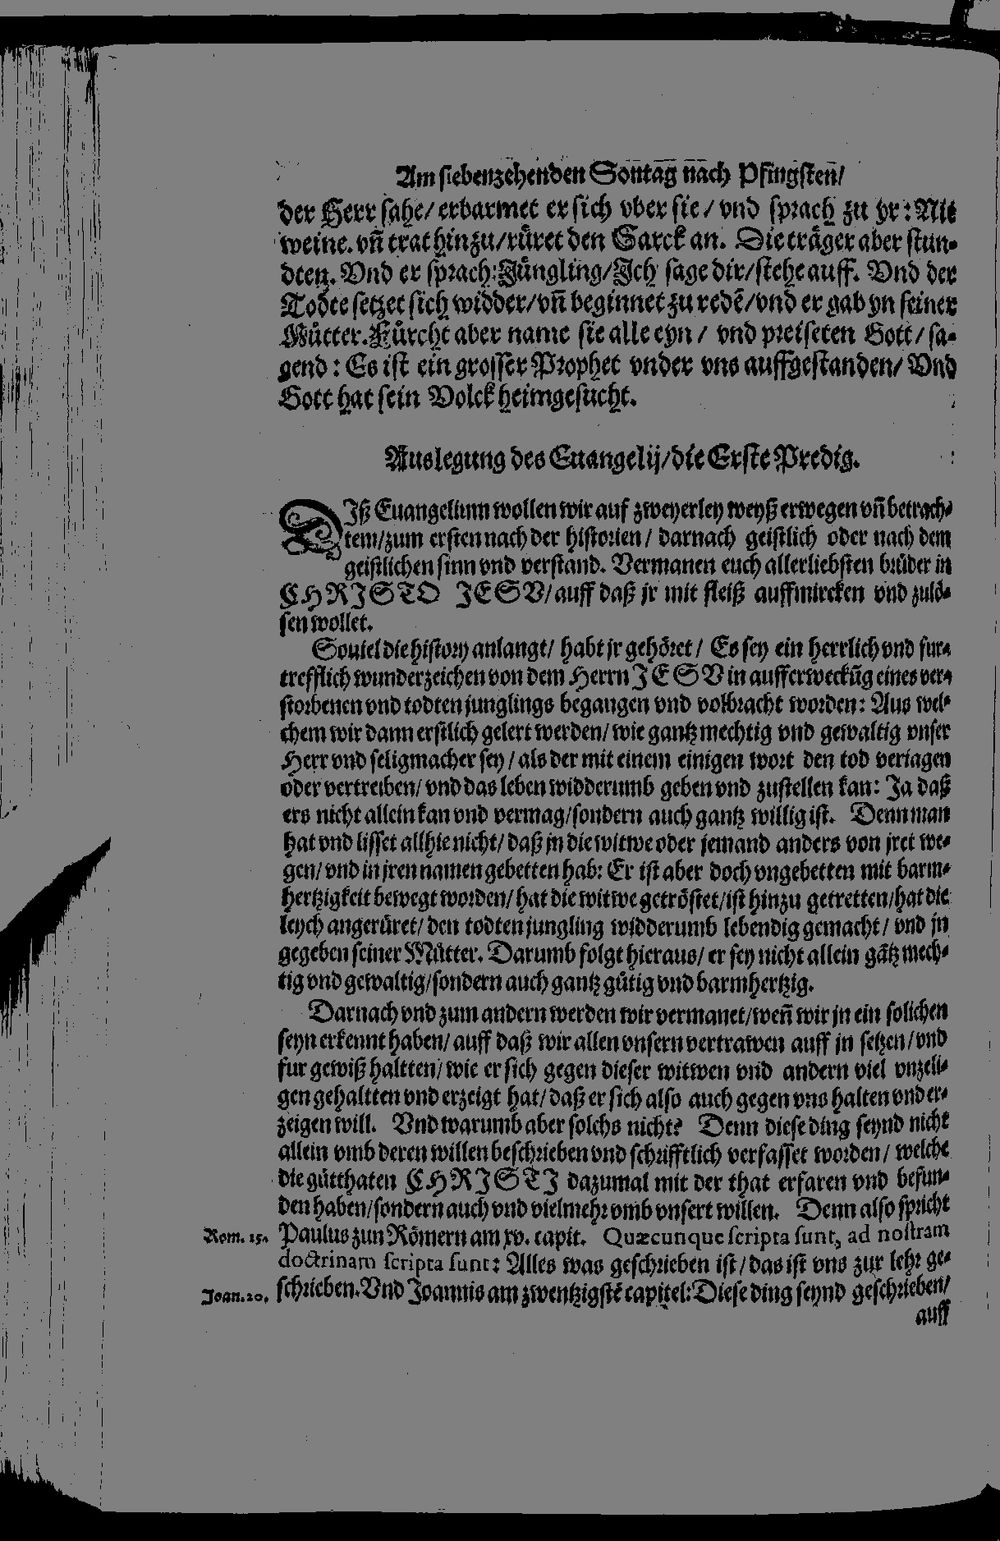 Am siebenzehenden Sontag nach Pfingsten/
der Herr sahe/ erbarmet er sich vber sie/ vnd sprach zu yr: Nit
weine. vñ trat hinzu/ rüret den Sarck an. Die träger aber stun-
dten. Vnd er sprach: Jüngling/ Jch sage dir/ stehe auff. Vnd der
Todte setzet sich widder/ vñ beginnet zu redẽ/ vnd er gab yn seiner
Mütter. Fürcht aber name sie alle eyn/ vnd preiseten Gott/ sa-
gend: Es ist ein grosser Prophet vnder vns auffgestanden/ Vnd
Gott hat sein Volck heimgesucht.
Auslegung des Euangelij/ die Erste Predig.
DIß Euangelium wollen wir auf zweyerley weyß erwegen vñ betrach-
tem/ zum ersten nach der historien/ darnach geistlich oder nach dem
geistlichen sinn vnd verstand. Vermanen euch allerliebsten brüder in
CHRISTO JESV/ auff daß jr mit fleiß auffmircken vnd zulö-
sen wollet.
Souiel die history anlangt/ habt jr gehöret/ Es sey ein herrlich vnd fur-
trefflich wunderzeichen von dem Herrn JESV in aufferweckũg eines ver-
storbenen vnd todten junglings begangen vnd volbracht worden: Aus wel-
chem wir dann erstlich gelert werden/ wie gantz mechtig vnd gewaltig vnser
Herr vnd seligmacher sey/ als der mit einem einigen wort den tod veriagen
oder vertreiben/ vnd das leben widderumb geben vnd zustellen kan: Ja daß
ers nicht allein kan vnd vermag/ sondern auch gantz willig ist. Denn man
hat vnd lisset allhie nicht/ daß jn die witwe oder jemand anders von jret we-
gen/ vnd in jren namen gebetten hab: Er ist aber doch vngebetten mit barm-
hertzigkeit bewegt worden/ hat die witwe getröstet/ ist hinzu getretten/ hat die
leych angerüret/ den todten jungling widderumb lebendig gemacht/ vnd jn
gegeben seiner Mütter. Darumb folgt hieraus/ er sey nicht allein gãtz mech-
tig vnd gewaltig/ sondern auch gantz gütig vnd barmhertzig.
Darnach vnd zum andern werden wir vermanet/ weñ wir jn ein solichen
seyn erkennt haben/ auff daß wir allen vnsern vertrawen auff jn setzen/ vnd
fur gewiß haltten/ wie er sich gegen dieser witwen vnd andern viel vnzeli-
gen gehaltten vnd erzeigt hat/ daß er sich also auch gegen vns halten vnd er-
zeigen will. Vnd warumb aber solchs nicht? Denn diese ding seynd nicht
allein vmb deren willen beschrieben vnd schrifftlich verfasset worden/ welche
die gütthaten CHRISTI dazumal mit der that erfaren vnd befun-
den haben/ sondern auch vnd vielmehr vmb vnsert willen. Denn also spricht
Rom. 15. Paulus zun Römern am xv. capit. Quæcunque scripta sunt, ad nostram
doctrinam scripta sunt: Alles was geschrieben ist/ das ist vns zur lehr ge-
Joan. 20. schrieben. Vnd Joannis am zwentzigstẽ capitel: Diese ding seynd geschrieben/
auff